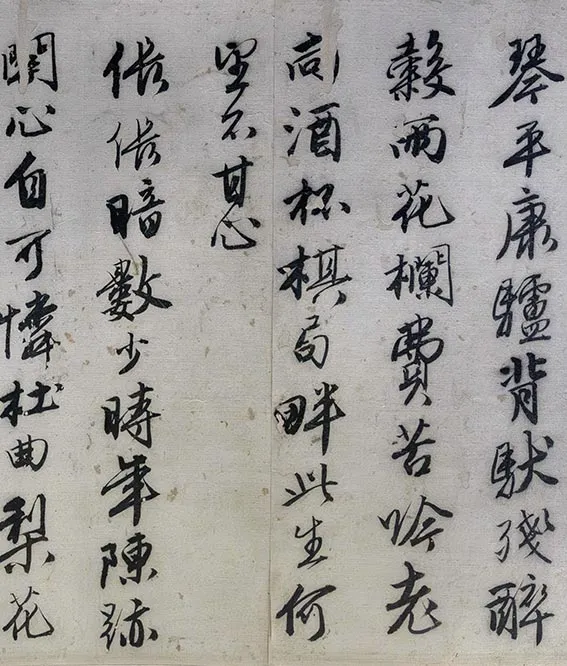 琴平康驢背馱殘醉
穀雨花欄費苦吟老
向酒杯棋局畔此生何
望不甘心
倀倀暗數少時年陳跡
關心自可憐杜曲梨花